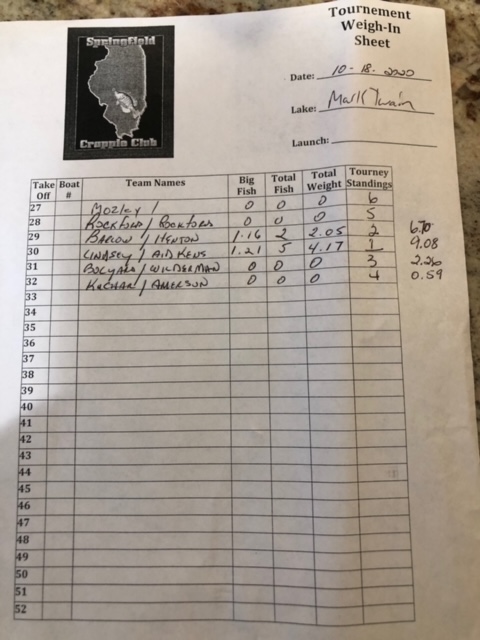 Tournement
Weigh-In
Sheet
Springfield
Crappie Club
Date: 10-18-2020
Lake: Mark Twain
Launch:
Take Off Boat # Team Names Big Fish Total Fish Total Weight Tourney Standings
27 Mozley / 0 0 0 6
28 Rockford / Rockford 0 0 0 5
29 Barlow / Henton 1.16 2 2.05 2 6.70
30 Lindsey / Aidkens 1.21 5 4.17 1 9.08
31 Bolyard / Wilderman 0 0 0 3 2.26
32 Kuchar / Amerson 0 0 0 4 0.59
33
34
35
36
37
38
39
40
41
42
43
44
45
46
47
48
49
50
51
52